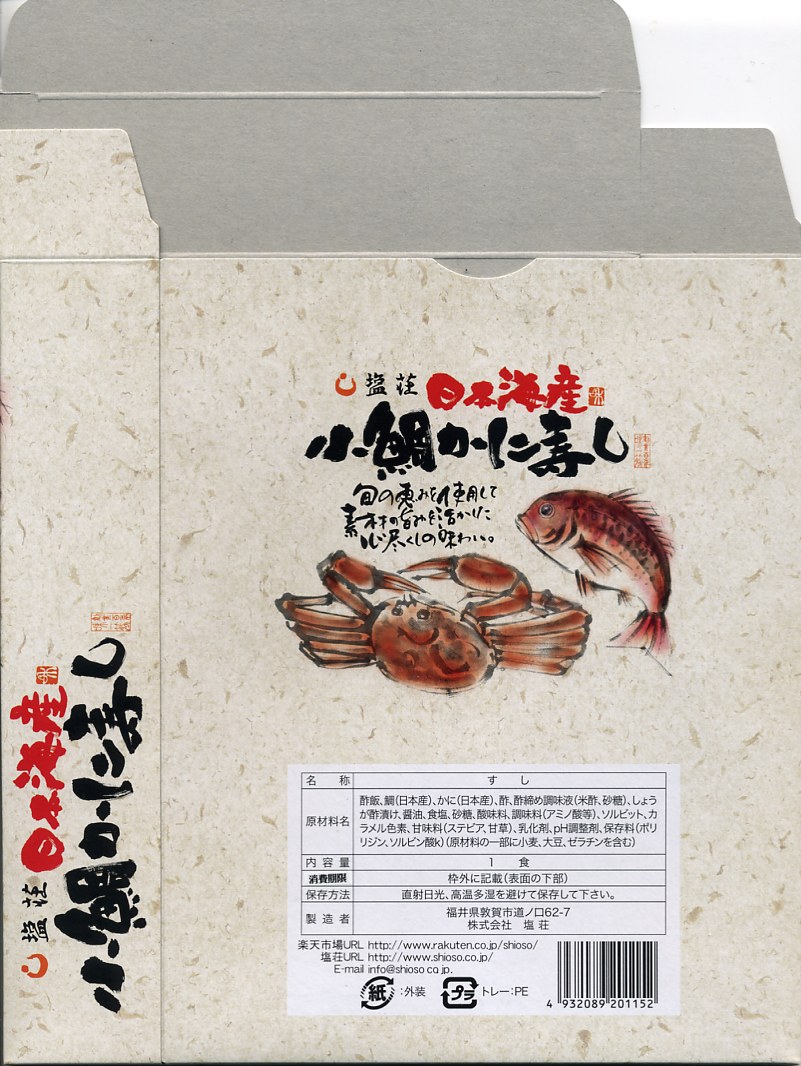 塩荘 日本海産
小鯛かに寿し
旬の恵みを使用して
素材の旨みを活かした
心尽くしの味わい。
名称 すし
原材料名 酢飯、鯛(日本産)、かに(日本産)、酢、酢締め調味液(米酢、砂糖)、しょう
が酢漬け、醤油、食塩、砂糖、酸味料、調味料(アミノ酸等)、ソルビット、カ
ラメル色素、甘味料(ステビア、甘草)、乳化剤、pH調整剤、保存料(ポリ
リジン、ソルビン酸k)(原材料の一部に小麦、大豆、ゼラチンを含む)
内容量 1 食
消費期限 枠外に記載(表面の下部)
保存方法 直射日光、高温多湿を避けて保存して下さい。
製造者 福井県敦賀市道ノ口62-7
株式会社 塩荘
楽天市場URL http://www.rakuten.co.jp/shioso/
塩荘URL http://www.shioso.co.jp/
E-mail info@shioso.co.jp.
紙:外装 プラ トレー:PE
4 932089 201152
塩荘 日本海産
小鯛かに寿し